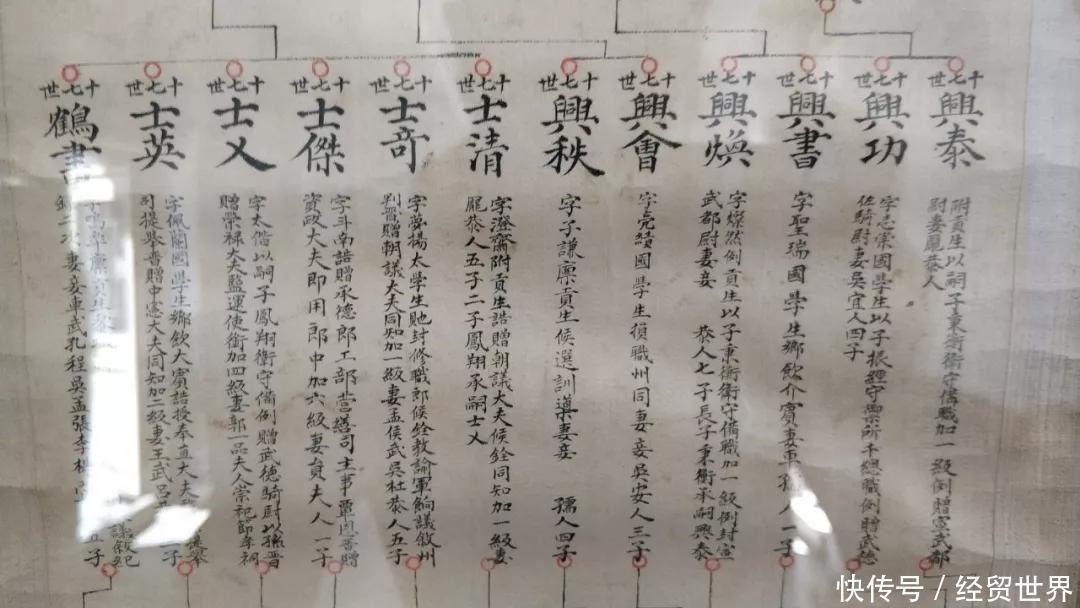 十七世
興泰
附貢生以嗣子秉衡衛守備職加一級例贈宣武都
尉妻鳳恭人
十七世
興功
字志崇國學生以子振經守禦所千總職例贈武德
佐騎尉妻吳宜人四子
十七世
興書
字聖瑞國學生鄉飲介賓妻車孺人一子
十七世
興煥
字燦然例貢生以子秉衡衛守備職加一級例封宣
武都尉妻姜 恭人七子長子秉衡承嗣興泰
十七世
興會
字亮績國學生損職州同妻姜吳安人三子
十七世
興秩
字子謙廩貢生候選訓導妻姜 孺人四子
十七世
士清
字澄齋附貢生誥贈朝議大夫候銓同知加一級妻
龐恭人五子二子鳳翔承嗣士乂
十七世
士奇
字夢揚太學生貤封修職郎候銓教諭軍餉議敘州
判晉贈朝議大夫同知加一級妻孟侯武吳杜恭人五子
十七世
士傑
字斗南誥贈承德郎工部營繕司主事覃恩晉贈
資政大夫即用郎中加六級妻貟夫人一子
十七世
士乂
字太偕以嗣子鳳翔衛守備例贈武德騎尉以孫晉
贈榮祿大夫鹽運使銜加四級妻郭一品夫人崇祀節孝祠
十七世
士英
字佩蘭國學生鄉飲大賓誥授奉直大夫
司提舉晉贈中憲大夫同知加二級妻王武呂 子
十七世
鶴書
廩貢生 議敘紀
錄二次妻姜車武孔程吳孟張李 五子
快传号 / 经贸世界